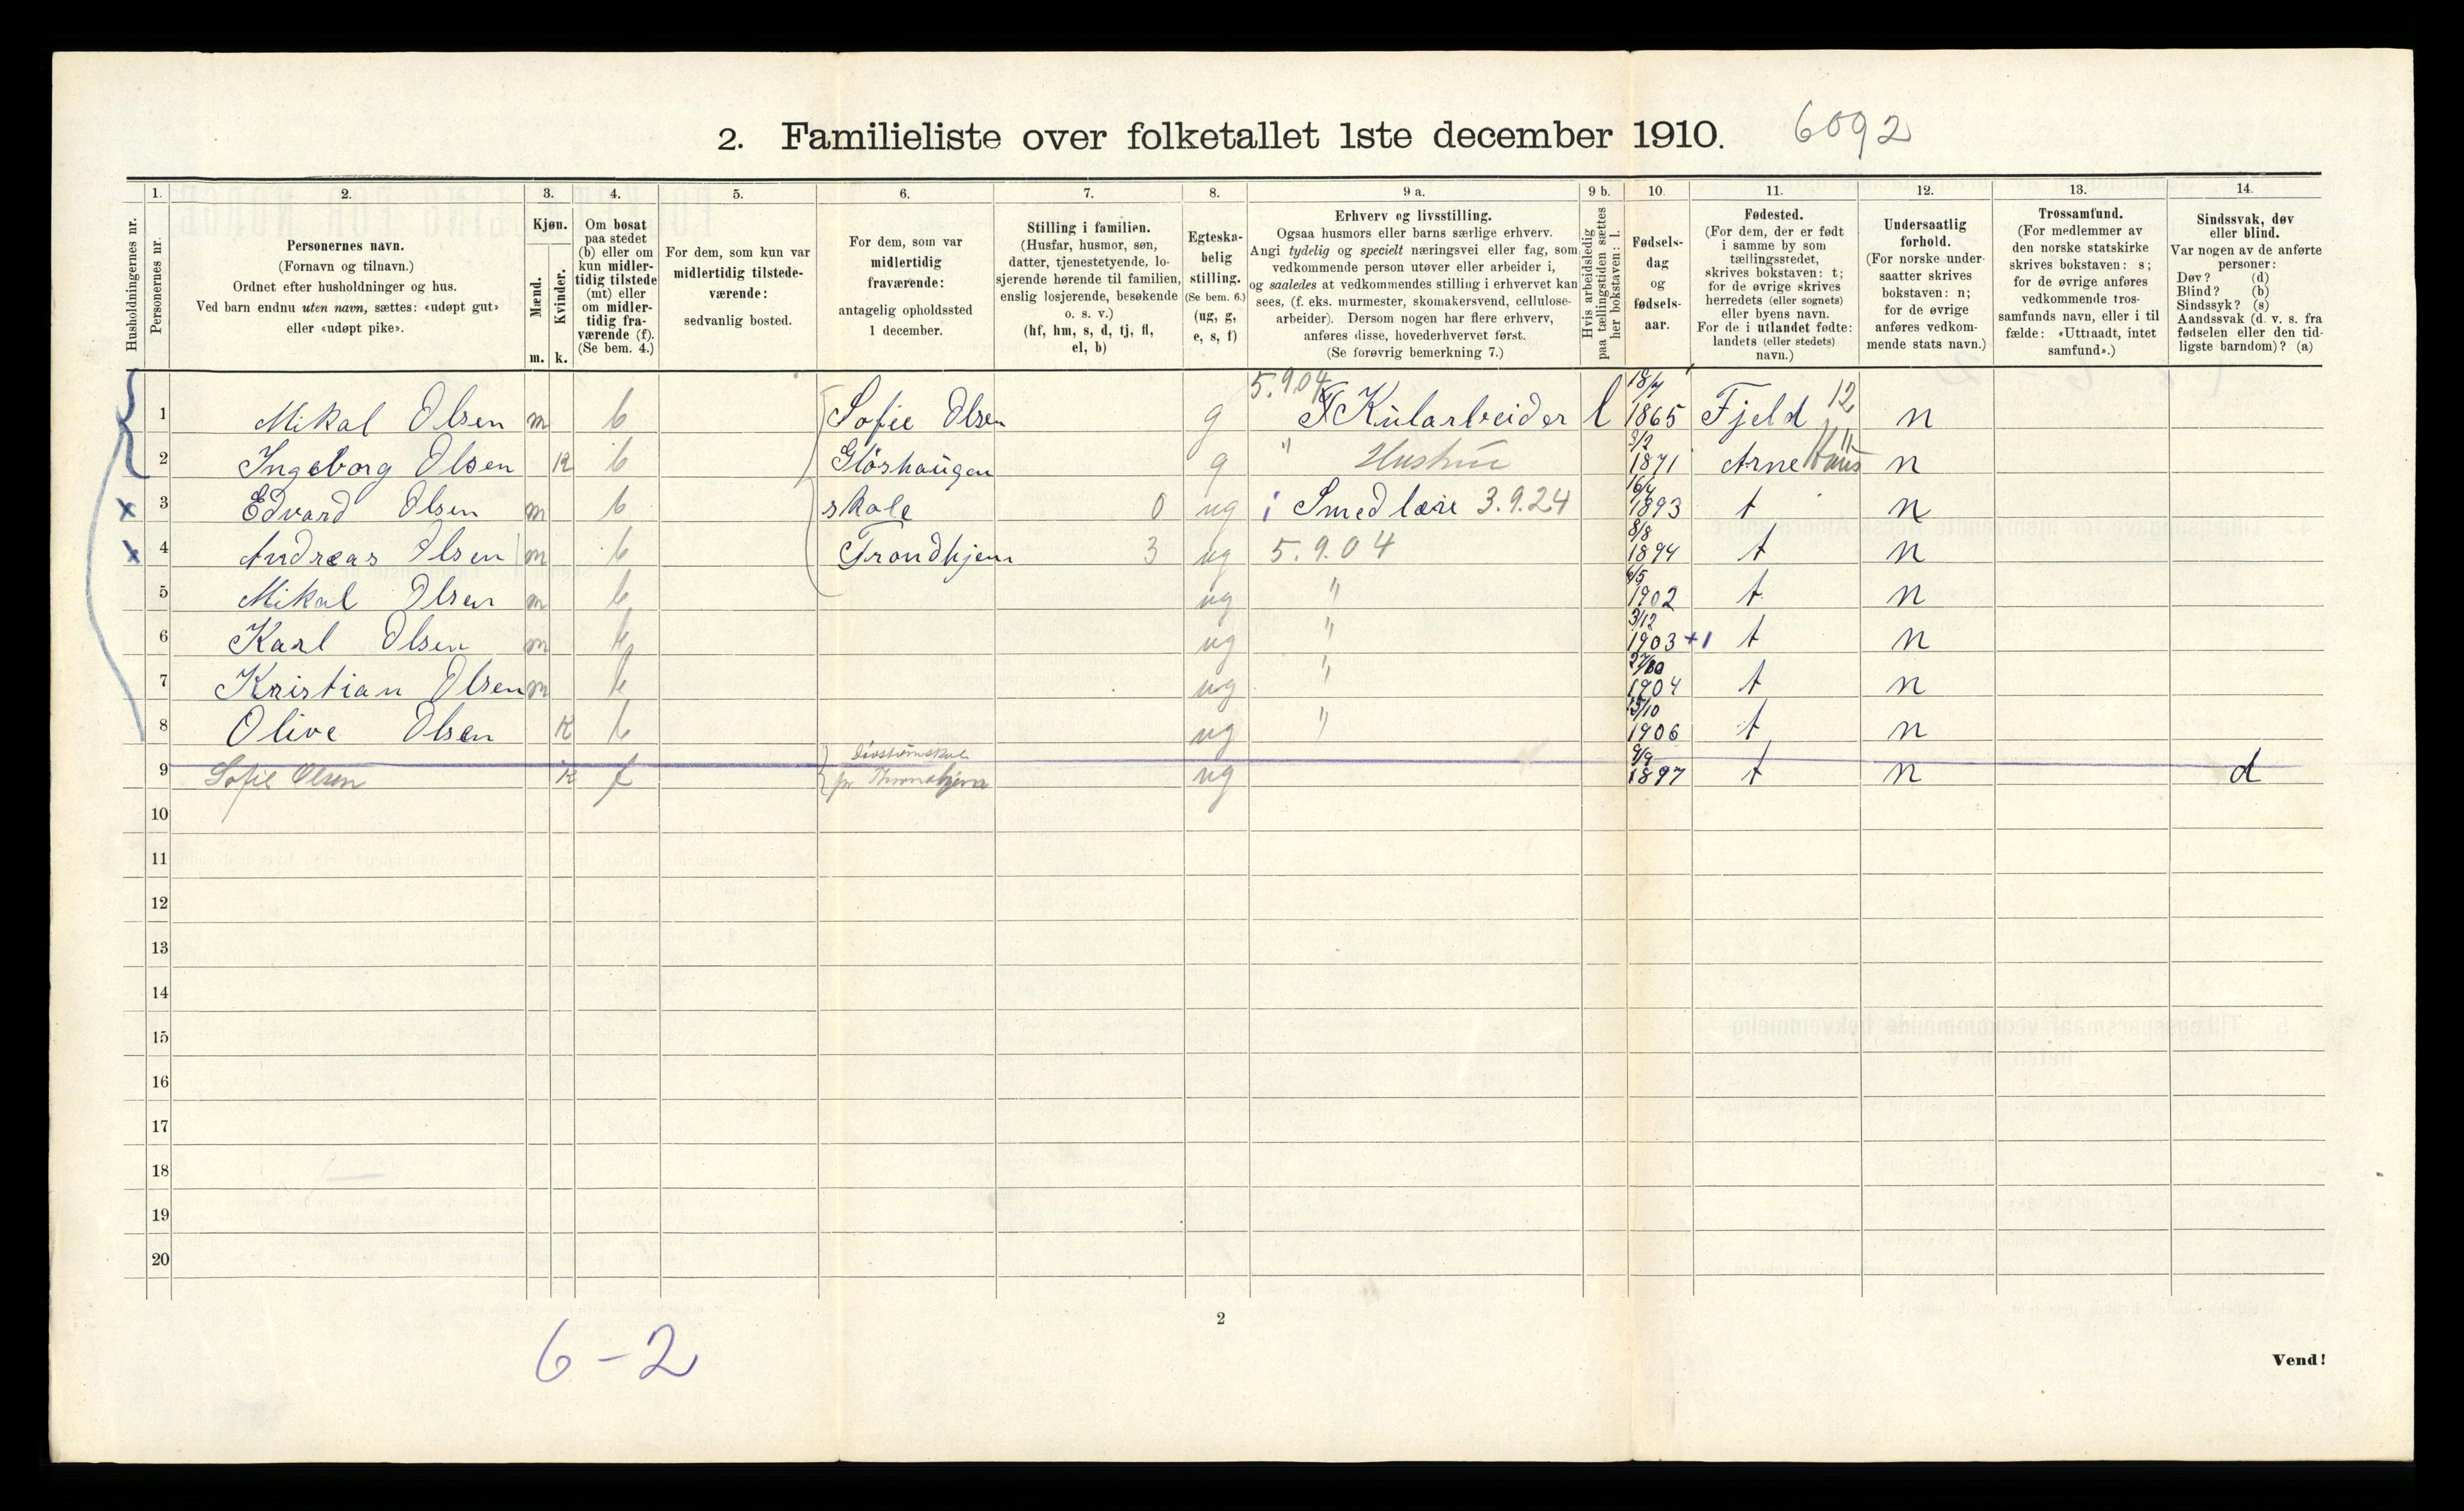 2. Familieliste over folketallet 1ste december 1910. 6092
1. 2. 3. 4. 5. 6. 7. 8. 9 a. 9 b. 10. 11. 12. 13. 14.
Husholdningernes nr.
Personernes nr.
Personernes navn.
(Fornavn og tilnavn.)
Ordnet efter husholdninger og hus.
Ved barn endnu uten navn, sættes: «udøpt gut»
eller «udøpt pike».
Kjøn.
Mænd.
Kvinder.
m. k.
Om bosat
paa stedet
(b) eller om
kun midler-
tidig tilstede
(mt) eller
om midler-
tidig fra-
værende (f).
(Se bem. 4.)
For dem, som kun var
midlertidig tilstede-
værende:
sedvanlig bosted.
For dem, som var
midlertidig
fraværende:
antagelig opholdssted
1 december.
Stilling i familien.
(Husfar, husmor, søn,
datter, tjenestetyende, lo-
sjerende hørende til familien,
enslig losjerende, besøkende
o. s. v.)
(hf, hm, s, d, tj, fl,
el, b)
Egteska-
belig
stilling.
(Se bem. 6.)
(ug, g,
e, s, f)
Erhverv og livsstilling.
Ogsaa husmors eller barns særlige erhverv.
Angi tydelig og specielt næringsvei eller fag, som
vedkommende person utøver eller arbeider i,
og saaledes at vedkommendes stilling i erhvervet kan
sees, (f. eks. murmester, skomakersvend, cellulose-
arbeider). Dersom nogen har flere erhverv,
anføres disse, hovederhvervet først.
(Se forøvrig bemerkning 7.)
Hvis arbeidsledig
paa tællingstiden sættes
her bokstaven: l.
Fødsels-
dag
og
fødsels-
aar.
Fødested.
(For dem, der er født
i samme by som
tællingsstedet,
skrives bokstaven: t;
for de øvrige skrives
herredets (eller sognets)
eller byens navn.
For de i utlandet fødte:
landets (eller stedets)
navn.)
Undersaatlig
forhold.
(For norske under-
saatter skrives
bokstaven: n;
for de øvrige
anføres vedkom-
mende stats navn.)
Trossamfund.
(For medlemmer av
den norske statskirke
skrives bokstaven: s;
for de øvrige anføres
vedkommende tros-
samfunds navn, eller i til
fælde: «Uttraadt, intet
samfund».)
Sindssvak, døv
eller blind.
Var nogen av de anførte
personer:
Døv? (d)
Blind? (b)
Sindssyk? (s)
Aandssvak (d. v. s. fra
fødselen eller den tid-
ligste barndom)? (a)
5.9.04 18/7
1 Mikal Olsen m b Sofie Olsen g Kularbeider l 1865 Fjeld 12 n
2 Ingeborg Olsen k b Gløshaugen g " Hustru 3/2 1871 Arne Haus 11 n
x 3 Edvard Olsen m b skole 0 ug i Smedlære 3.9.24 16/4 1893 t n
x 4 Andreas Olsen m b Trondhjem 3 ug 5.9.04 8/8 1894 t n
5 Mikal Olsen m b ug " 6/5 1902 t n
6 Karl Olsen m b ug " 3/12 1903 +1 t n
7 Kristian Olsen m b ug " 1904 t n
8 Olive Olsen k b ug " 15/10 1906 t n
9 Sofie Olsen k f ug 9/9 1897 t n d
10
11
12
13
14
15
16
17
18
19
20
2
6-2
Vend!